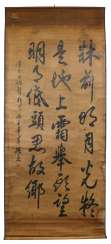 牀前明月光疑
是地上霜舉頭望
明月低頭思故鄉